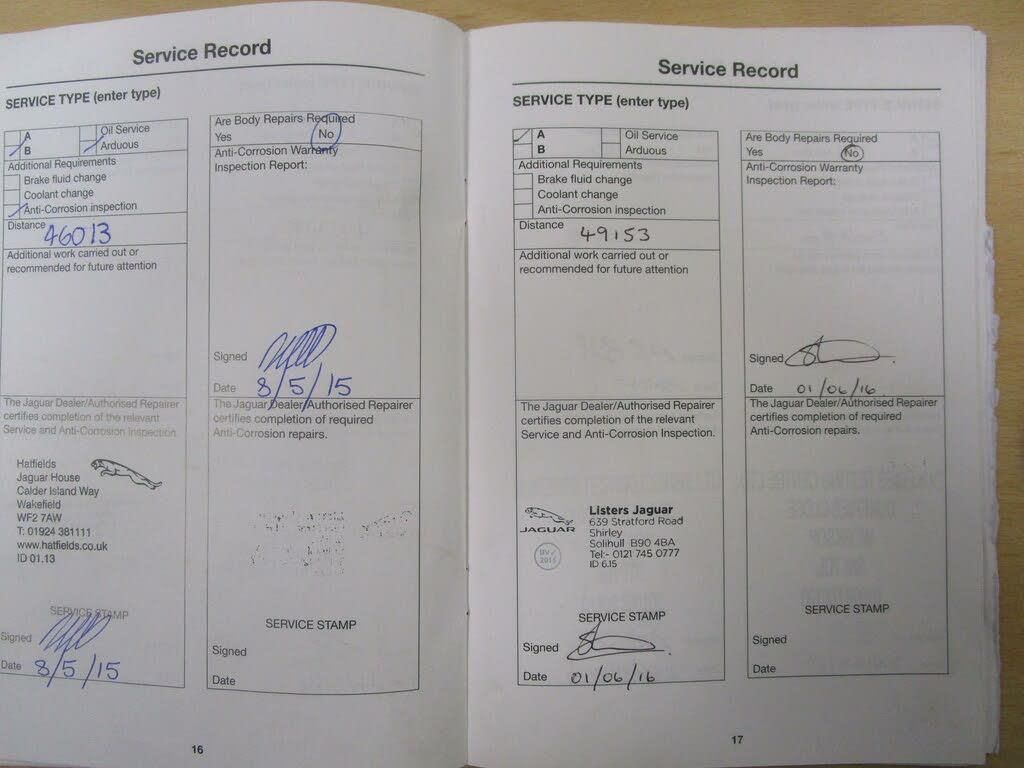 Service Record
SERVICE TYPE (enter type)
A
B
Oil Service
Arduous
Additional Requirements
Brake fluid change
Coolant change
Anti-Corrosion inspection
Distance
46013
Additional work carried out or
recommended for future attention
The Jaguar Dealer/Authorised Repairer
certifies completion of the relevant
Service and Anti-Corrosion Inspection.
Hatfields
Jaguar House
Calder Island Way
Wakefield
WF2 7AW
T: 01924 381111
www.hatfields.co.uk
ID 01.13
SERVICE STAMP
Signed
Date 8/5/15
Are Body Repairs Required
Yes No
Anti-Corrosion Warranty
Inspection Report:
Signed
Date 8/5/15
The Jaguar Dealer/Authorised Repairer
certifies completion of required
Anti-Corrosion repairs.
SERVICE STAMP
Signed
Date
16
Service Record
SERVICE TYPE (enter type)
A
B
Oil Service
Arduous
Additional Requirements
Brake fluid change
Coolant change
Anti-Corrosion inspection
Distance
49153
Additional work carried out or
recommended for future attention
The Jaguar Dealer/Authorised Repairer
certifies completion of the relevant
Service and Anti-Corrosion Inspection.
JAGUAR
Listers Jaguar
639 Stratford Road
Shirley
Solihull B90 4BA
Tel:- 0121 745 0777
ID 6.15
SERVICE STAMP
Signed
Date 01/06/16
Are Body Repairs Required
Yes No
Anti-Corrosion Warranty
Inspection Report:
Signed
Date 01/06/16
The Jaguar Dealer/Authorised Repairer
certifies completion of required
Anti-Corrosion repairs.
SERVICE STAMP
Signed
Date
17